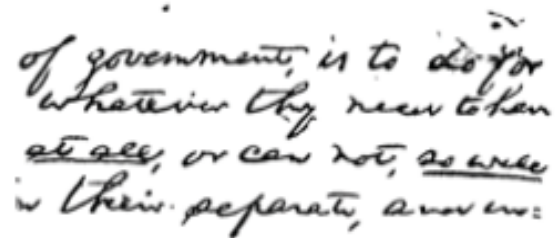 of government, is to do for
whatever they need to hav
at all, or can not, so well
n their separate, and in=